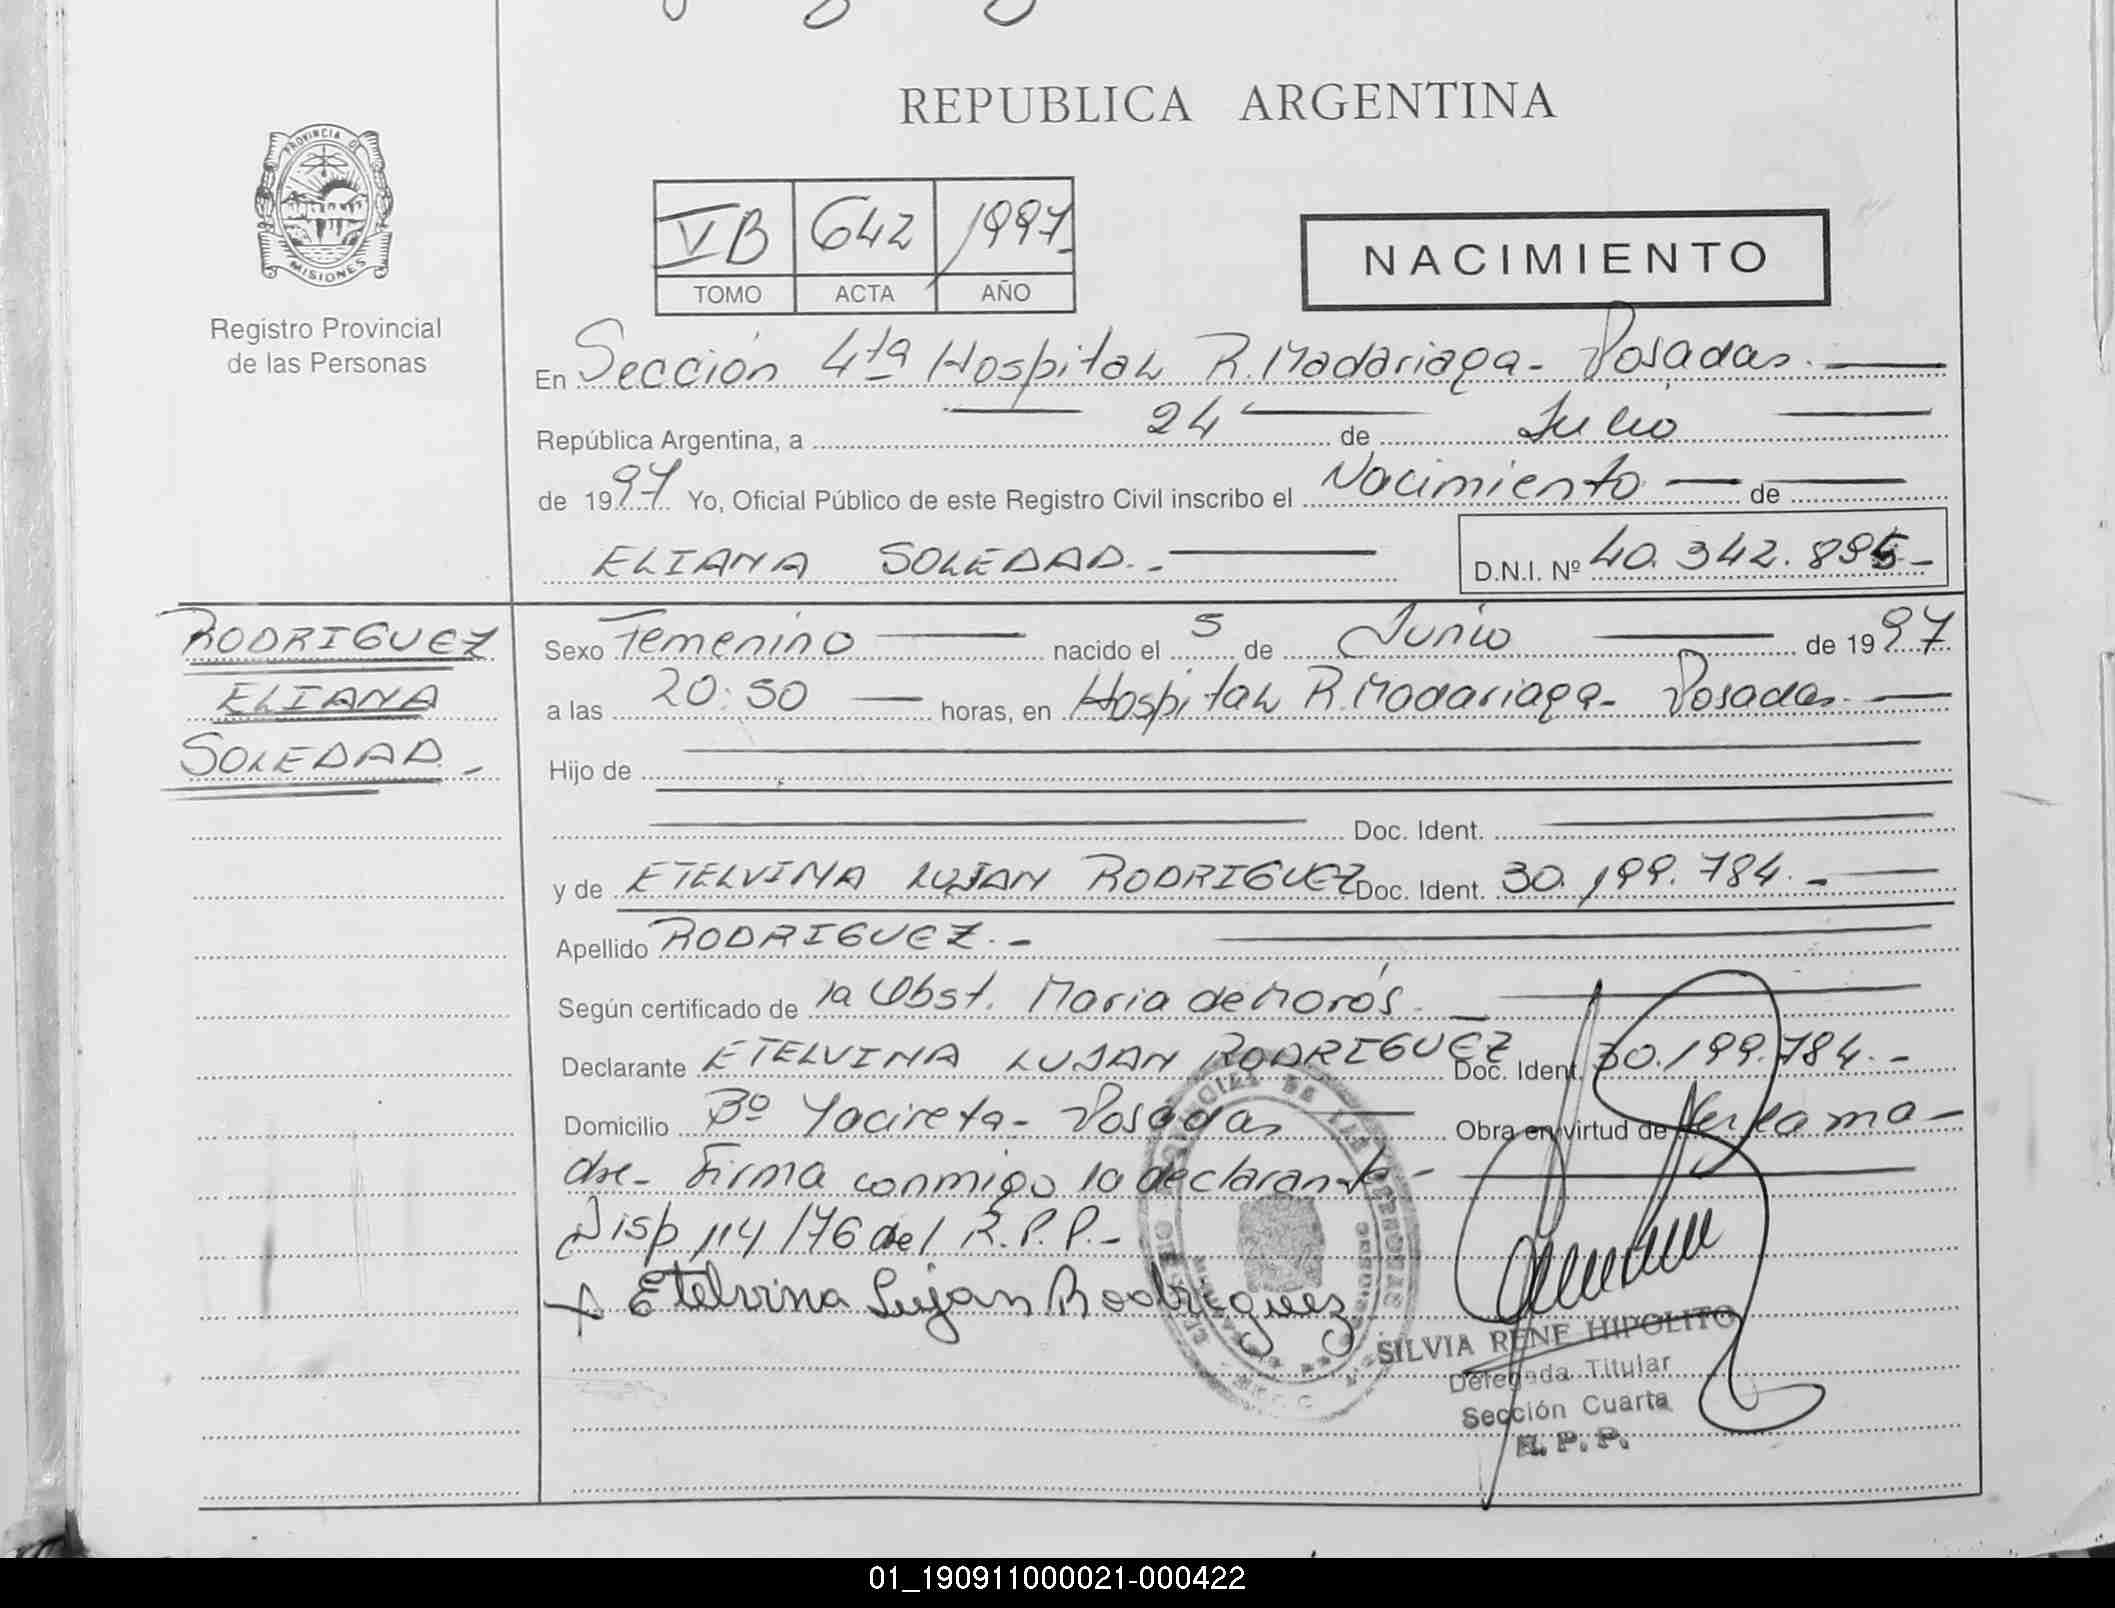 REPUBLICA ARGENTINA
PROVINCIA DE
MISIONES
Registro Provincial
de las Personas
VB 642 1997-
TOMO ACTA AÑO
NACIMIENTO
En Sección 4ta Hospital R. Madariaga- Posadas.
República Argentina, a 24 de Julio
de 1997 Yo, Oficial Público de este Registro Civil inscribo el Nacimiento de
ELIANA SOLEDAD.-
D.N.I. Nº 40.342.895-
RODRIGUEZ
ELIANA
SOLEDAD.-
Sexo Femenino nacido el 5 de Junio de 1997
a las 20:50 horas, en Hospital R. Madariaga- Posadas.
Hijo de
Doc. Ident.
y de ETELVINA LUJAN RODRIGUEZ Doc. Ident. 30.199.784.-
Apellido RODRIGUEZ.-
Según certificado de la Obst. Maria de Morós.
Declarante ETELVINA LUJAN RODRIGUEZ Doc. Ident. 30.199.784.-
Domicilio Bº Yacireta- Posadas Obra en virtud de Ser la ma-
dre- Firma conmigo la declarante-
Disp 114/76 del R.P.P.-
x Etelvina Lujan Rodriguez
SILVIA RENE HIPOLITO
Delegada Titular
Sección Cuarta
R. P. P.
01_190911000021-000422